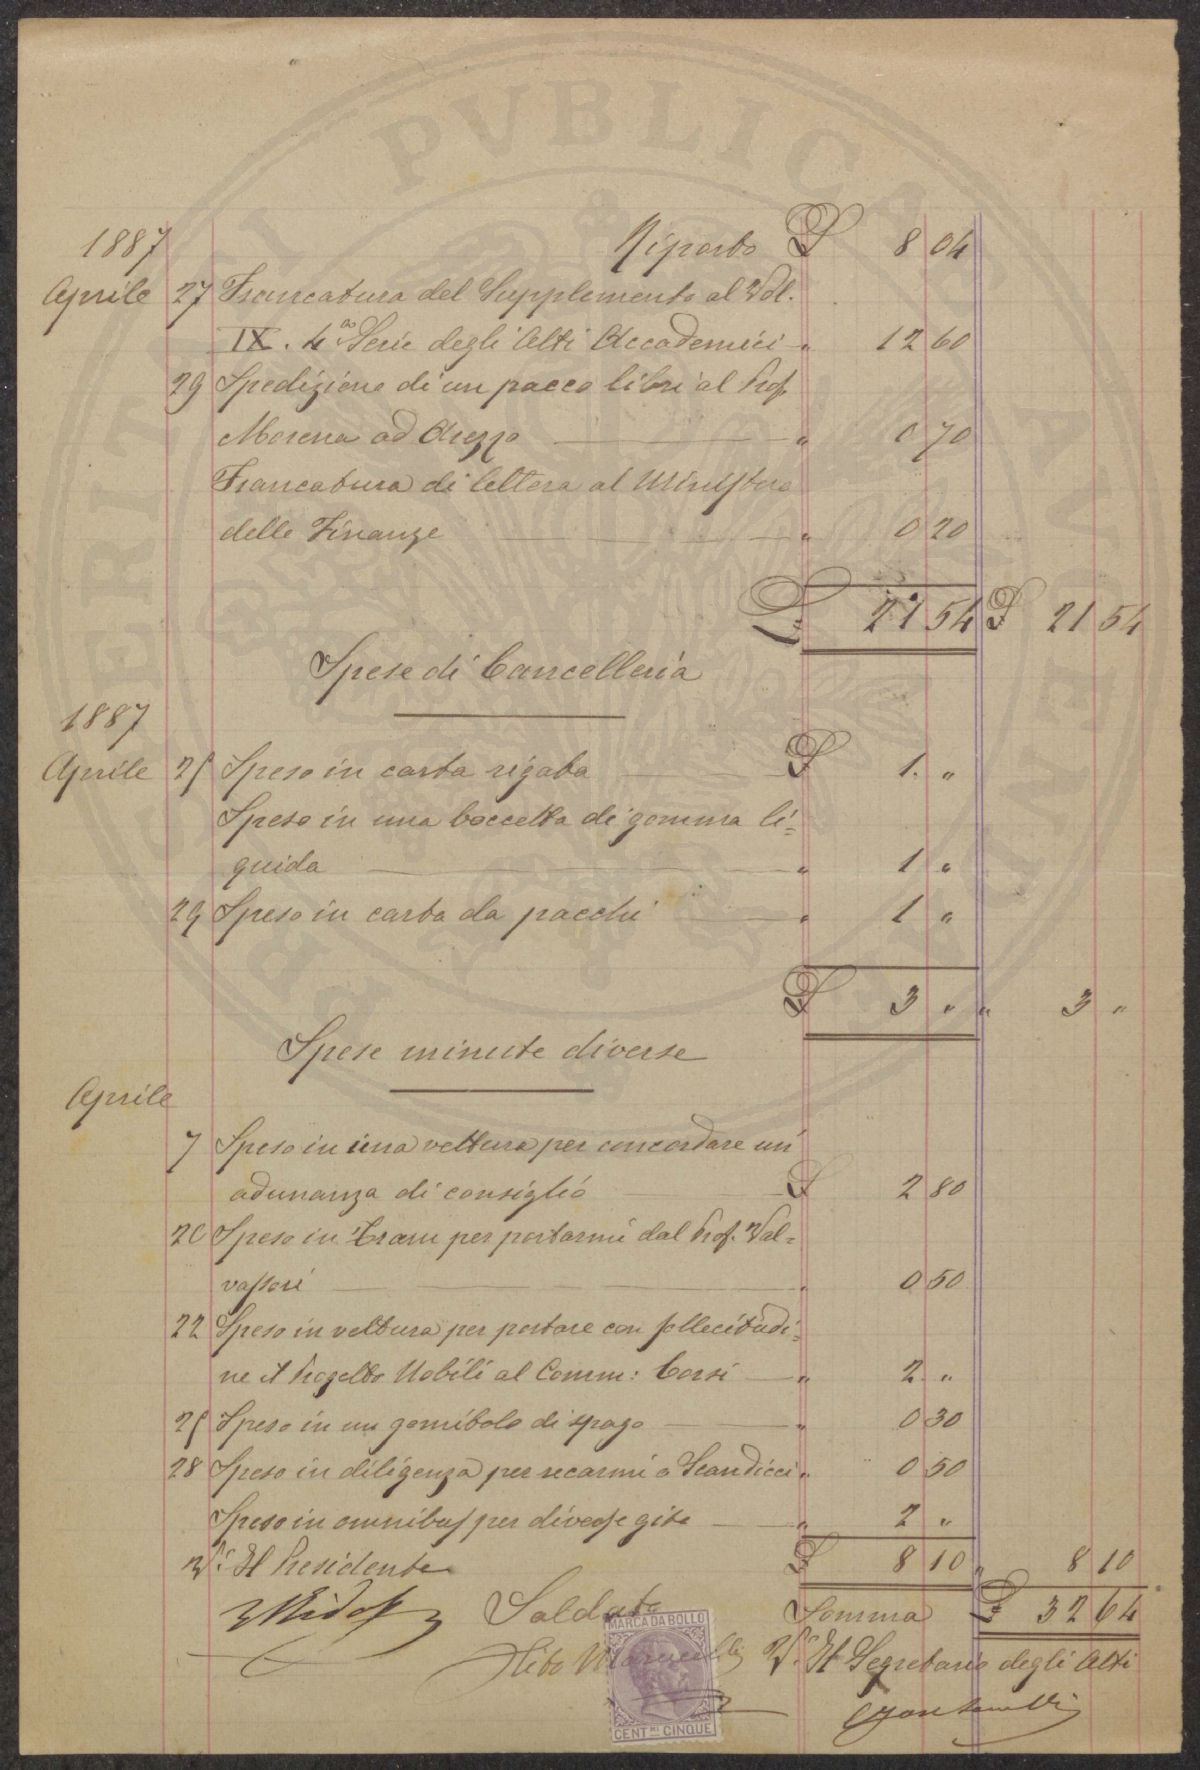 1887 Riporto £ 8 04
Aprile 27 Francatura del Supplemento al Vol.
IX. 4ª Serie degli Atti Accademici " 12 60
29 Spedizione di un pacco libri al Prof.
Morena ad Arezzo " 0 70
Francatura di lettera al Ministero
delle Finanze " 0 20
£ 21 54 £ 21 54
Spese di Cancelleria
1887
Aprile 25 Speso in carta rigata £ 1. "
Speso in una boccetta di gomma li=
quida " 1 "
29 Speso in carta da pacchi " 1 "
£ 3 " " 3 "
Spese minute diverse
Aprile
7 Speso in una vettura per concordare un'
adunanza di consiglio £ 2 80
20 Speso in Tram per portarmi dal Prof. Val=
vassori " 0 50
22 Speso in vettura per portare con sollecitudi=
ne il Progetto Nobili al Comm: Corsi " 2 "
25 Speso in un gomitolo di spago " 0 30
28 Speso in diligenza per recarmi a Scandicci " 0 50
Speso in omnibus per diverse gite " 2 "
Vº Il Presidente £ 8 10 " 8 10
Saldato Somma £ 32 64
MARCA DA BOLLO
Vº Il Segretario degli Atti
CENT.MI CINQUE